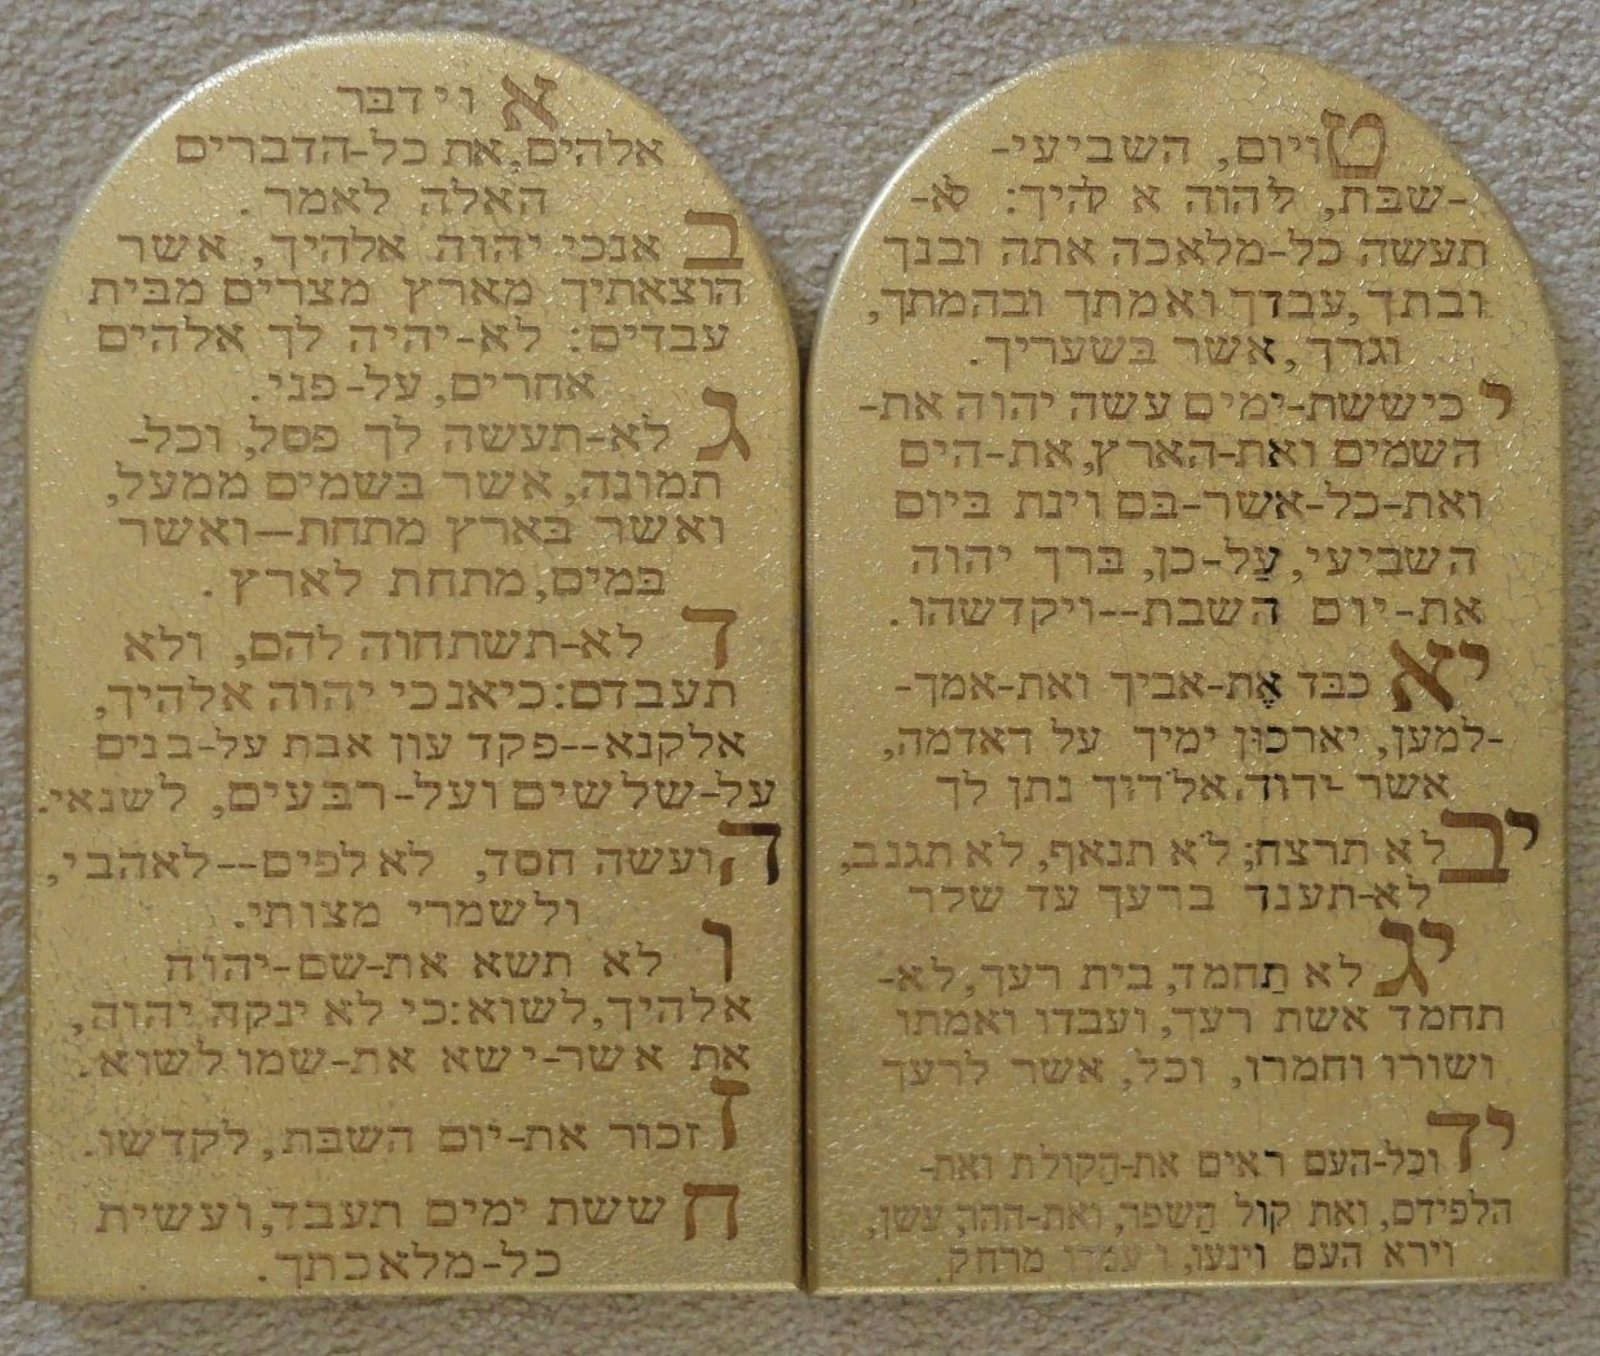 א וידבר
אלהים, את כל-הדברים
האלה לאמר.
ב אנכי יהוה אלהיך, אשר
הוצאתיך מארץ מצרים מבית
עבדים: לא-יהיה לך אלהים
אחרים, על-פני.
ג לא-תעשה לך פסל, וכל-
תמונה, אשר בשמים ממעל,
ואשר בארץ מתחת--ואשר
במים, מתחת לארץ.
ד לא-תשתחוה להם, ולא
תעבדם: כיאנכי יהוה אלהיך,
אלקנא--פקד עון אבת על-בנים
על-שלשים ועל-רבעים, לשנאי.
ה ועשה חסד, לאלפים--לאהבי,
ולשמרי מצותי.
ו לא תשא את-שם-יהוה
אלהיך, לשוא: כי לא ינקה יהוה,
את אשר-ישא את-שמו לשוא.
ז זכור את-יום השבת, לקדשו.
ח ששת ימים תעבד, ועשית
כל-מלאכתך.
ט ויום, השביעי-
-שבת, ליהוה א להיך: לא-
תעשה כל-מלאכה אתה ובנך
ובתך, עבדך ואמתך ובהמתך,
וגרך, אשר בשעריך.
י כיששת-ימים עשה יהוה את-
השמים ואת-הארץ, את-הים
ואת-כל-אשר-בם וינת ביום
השביעי, עַל-כן, ברך יהוה
את-יום השבת--ויקדשהו.
יא כבד אֶת-אביך ואת-אמך-
-למען, יארכון ימיך על האדמה,
אשר יהוה אלהיך נתן לך
יב לא תרצח; לא תנאף, לא תגנב,
לא-תענד ברעך עד שלר
יג לא תַחמד, בית רעך, לא-
תחמד אשת רעך, ועבדו ואמתו
ושורו וחמרו, וכל, אשר לרעך
יד וכל-העם ראים את-הַקולת ואת-
הלפידם, ואת קול הַשפר, ואת-ההר, עשן,
וירא העם וינעו, ויעמדו מרחק.